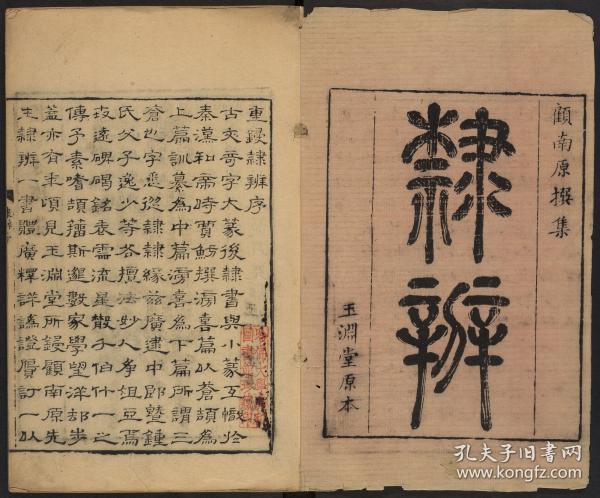 顧南原撰集
隸辨
玉淵堂原本
重鋟隸辨序
古文奇字大篆後隸書與小篆互幟於
秦漢和帝時賈魴撰滂喜篇以蒼頡為
上篇訓纂為中篇滂喜為下篇所謂三
蒼也字悉從隸隸緣茲廣逮中郎暨鍾
氏父子逸少等各擅法妙人爭俎豆焉
攷遠碑碣銘表雲流星散千伯什一之
傳予素嗜頡籀斯邈數家學望洋卻步
蓋亦有年頃見玉淵堂所鋟顧南原先
生隸辨一書體廣釋詳譌證贗訂一以
孔夫子旧书网
www.kongfz.com